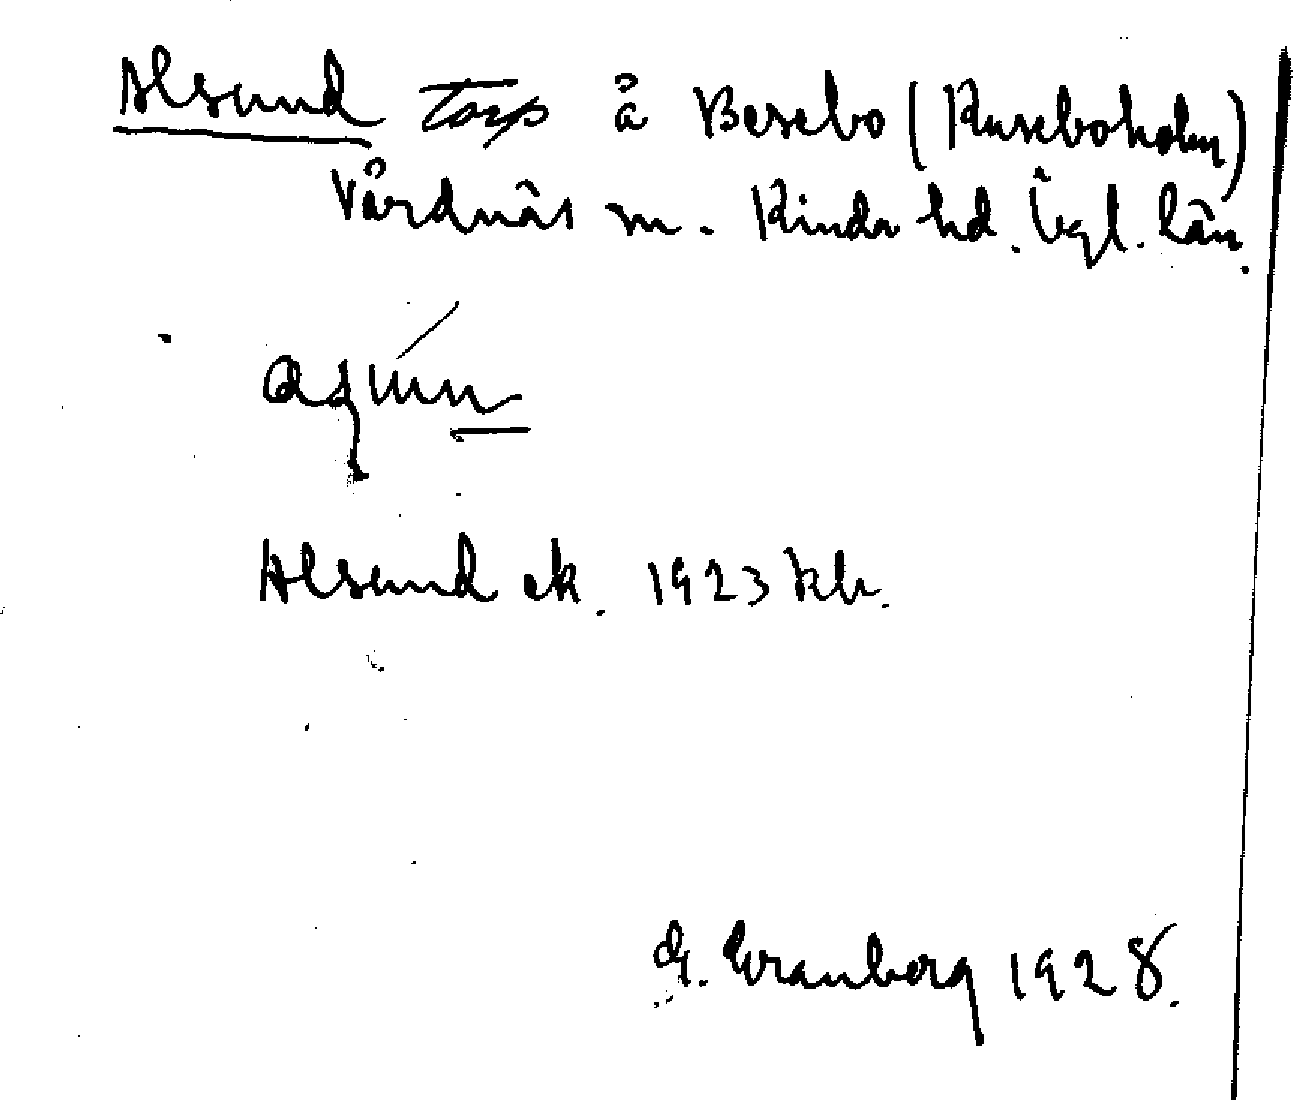 Alsund Torp å Besebo (Ruseboholm)
Vårdnäs sn. Kinds hd. Ögl. län.
Alsund ek. 1923 kb.
G. Granberg 1928.